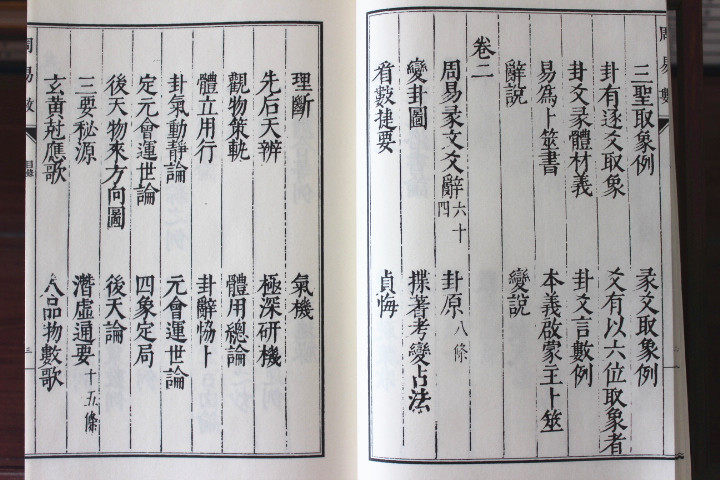 周易數
三聖取象例 彖爻取象例
卦有逐爻取象 爻有以六位取象者
卦爻彖體材義 卦爻言數例
易為卜筮書 本義啟蒙主卜筮
辭說 變說
卷二
周易彖文爻辭六十四 卦原八條
變卦圖 揲蓍考變占法
看數捷要 貞悔
理斷 氣機
先后天辨 極深研機
觀物策軌 體用總論
體立用行 卦辭恊卜
卦氣動靜論 元會運世論
定元會運世論 四象定局
後天物來方向圖 後天論
三要秘源 潛虛通要十五條
玄黃尅應歌 八品物數歌
周易數
目錄
三